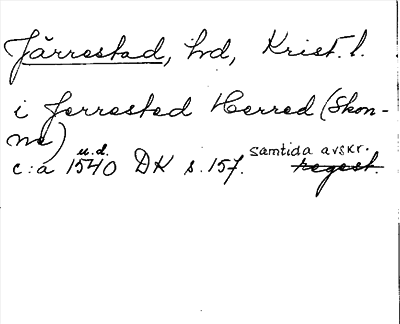 Järrestad, hd, Krist. l.
i Jerrested Herred (Skon-
ne)
c:a 1540 u.d. DK s. 157. samtida avskr. regest.